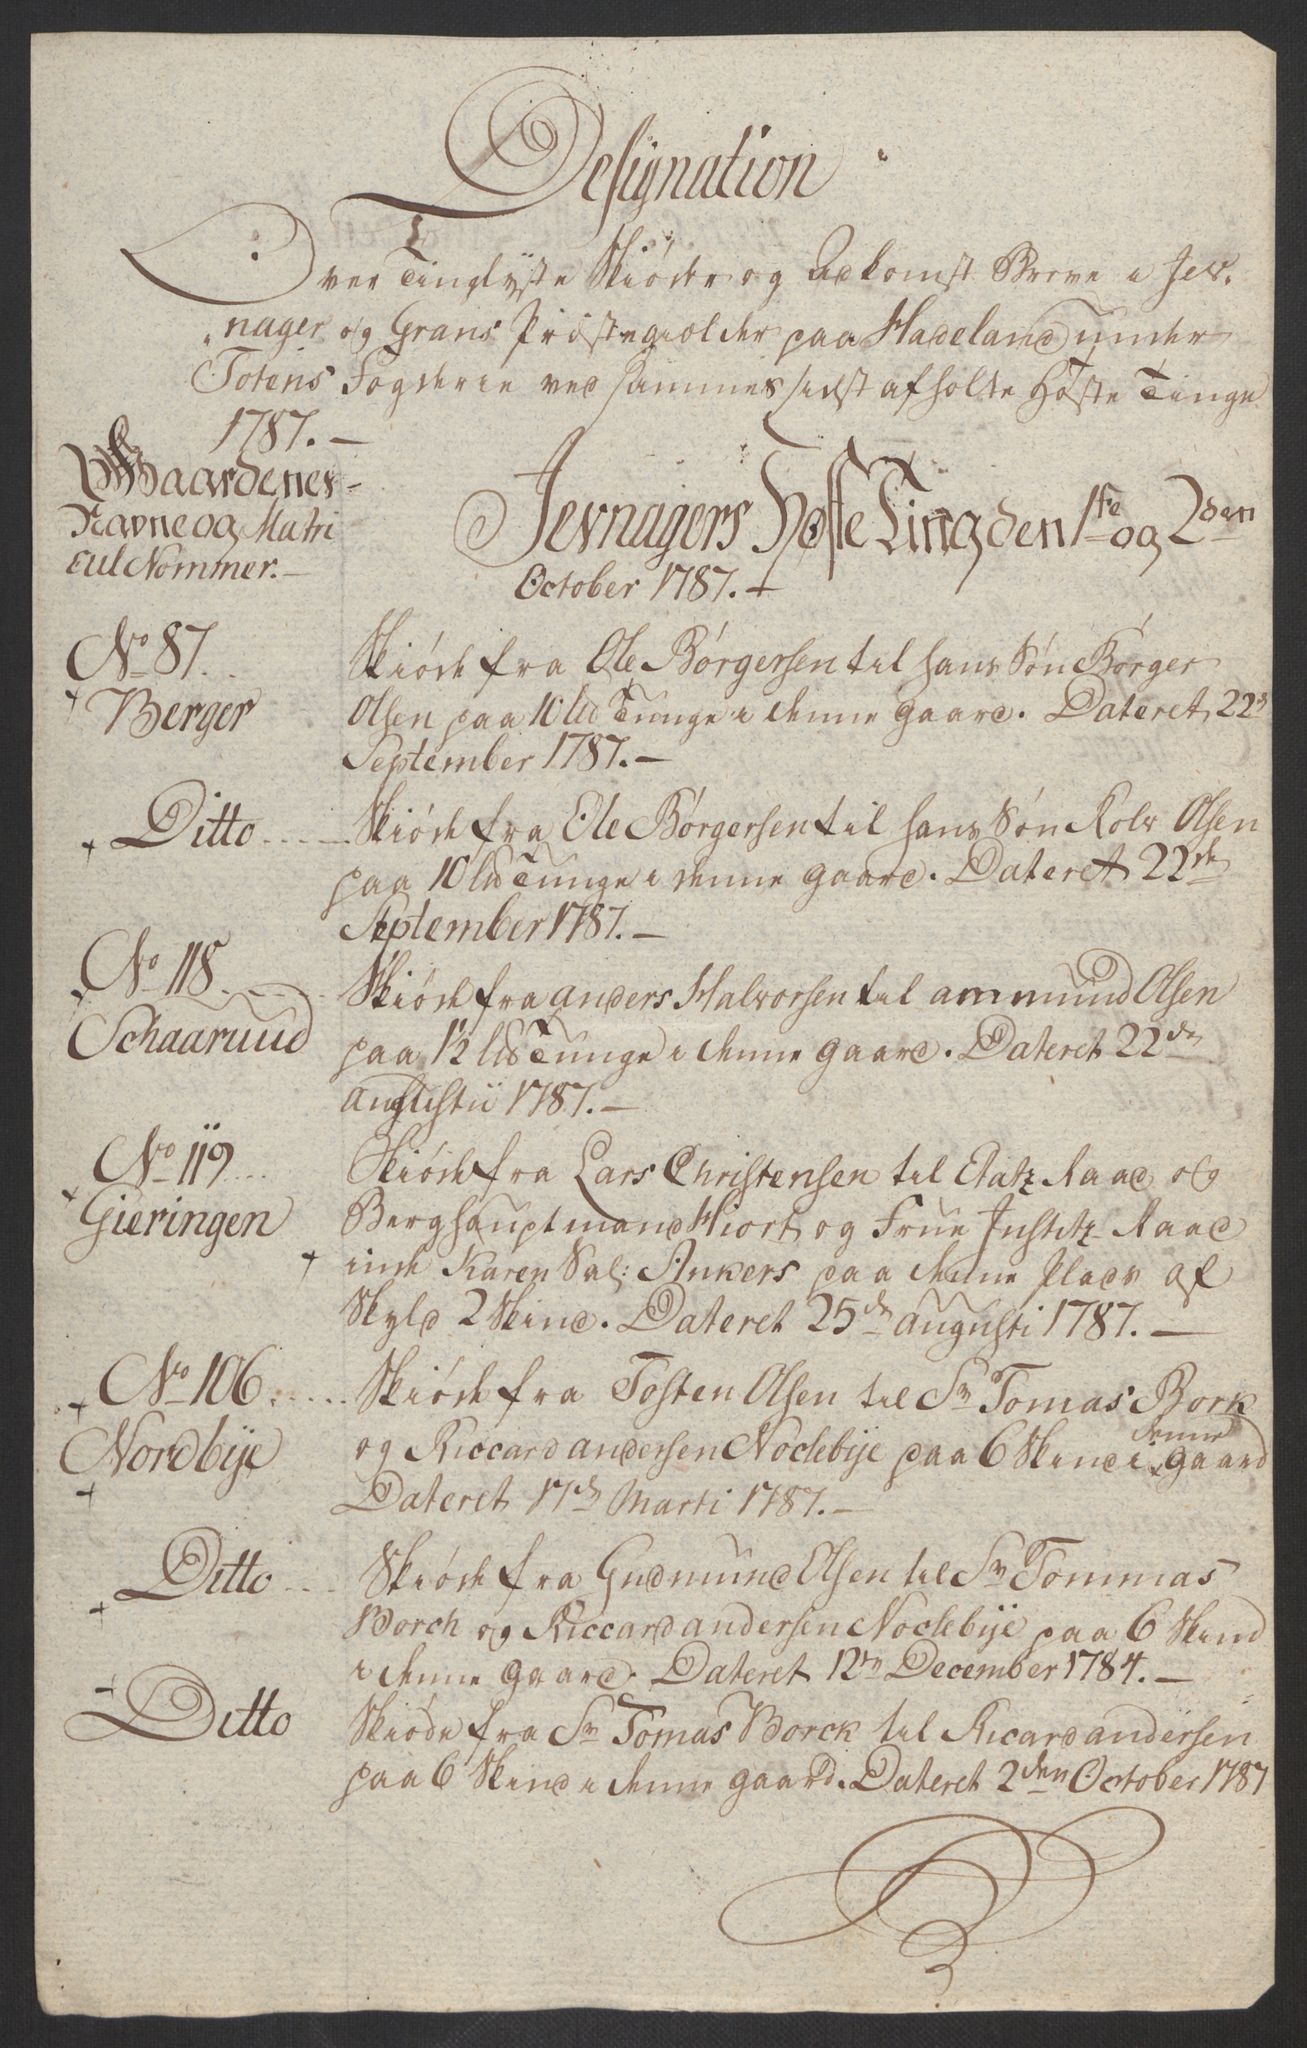 Designation
Over Tinglyste Skiöder og Adkomst Breve i Jev-
nager og Grans Præstegiolder paa Hadeland under
Totens Fogderie ved sammes sidst afholte Höste Tinge
1787.—
Gaardenes
Navne og Matri
cul Nommer.—
Jevnagers Höste Ting den 1ste og 2den
October 1787.—
No 87.
Berger
Skiöde fra Ole Börgersen til hans Sön Börger
Olsen paa 10 lld Tunge i denne gaard. Dateret 22de
September 1787.—
Ditto
Skiöde fra Ole Börgersen til hans Sön Rolv Olsen
paa 10 lld Tunge i denne gaard. Dateret 22de
September 1787.—
No 118
Schaaruud
Skiöde fra anders Halvorsen til ammund Olsen
paa 1½ lld Tunge i denne gaard. Dateret 22de
augustii 1787.—
No 119
Gieringen
Skiöde fra Lars Christensen til Etatz Raad og
Berghauptmand Hiort og Frue Justitz Raad
inde Karen Sal: Ankers paa denne Plads af
Skyld 2 Skind. Dateret 25de augusti 1787.—
No 106
Nordbÿe
Skiöde fra Tosten Olsen til Sr Tomas Bork
og Riccard andersen Noclebÿe paa 6 Skind i denne gaard
Dateret 17de Marti 1787.—
Ditto
Skiöde fra Gudmund Olsen til Sr Tommas
Borch og Riccard andersen Noclebÿe paa 6 Skind
i denne gaard. Dateret 12te December 1784.—
Ditto
Skiöde fra Sr Tomas Borck til Ricard andersen
paa 6 Skind i denne gaard. Dateret 2den October 1787